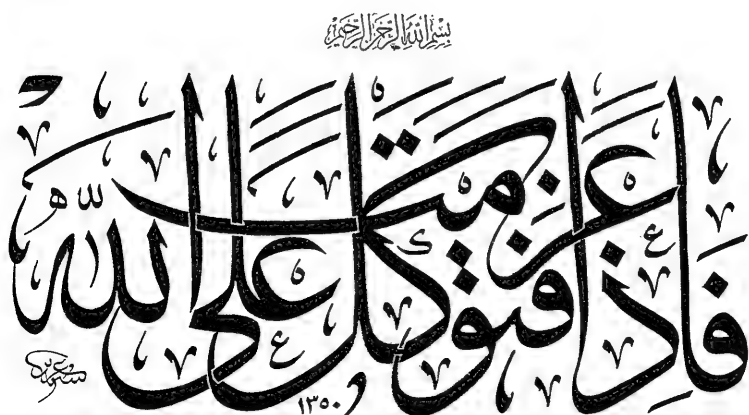 بسم الله الرحمن الرحيم
فَإِذَا عَزَمْتَ فَتَوَكَّلْ عَلَى اللَّهِ
١٣٥٠